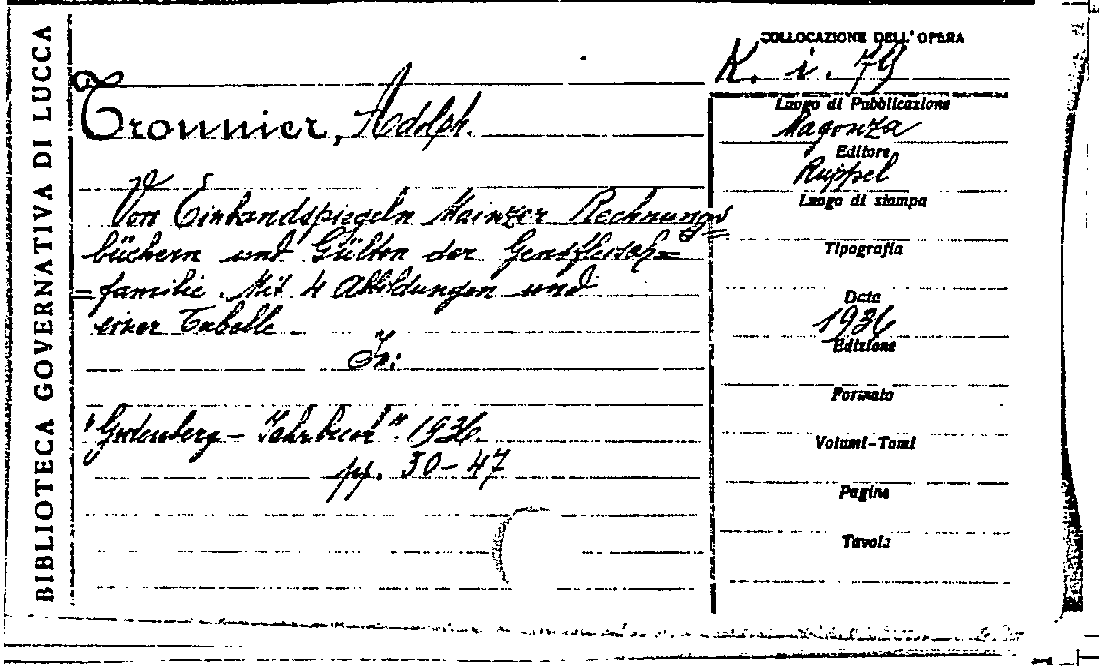 BIBLIOTECA GOVERNATIVA DI LUCCA
COLLOCAZIONE DELL'OPERA
K. i. 79
Tronnier, Adolph.
Von Einhandspiegeln Mainzer Rechnungs=
büchern und Gülten der Gensfleisch=
=familie. Mit 4 Abbildungen und
einer Tabelle -
In:
"Gutenberg - Jahrbuch" 1936
pp. 30-47
Luogo di Pubblicazione
Magonza
Editore
Ruppel
Luogo di stampa
Tipografia
Data
1936
Edizione
Formato
Volumi-Tomi
Pagine
Tavole